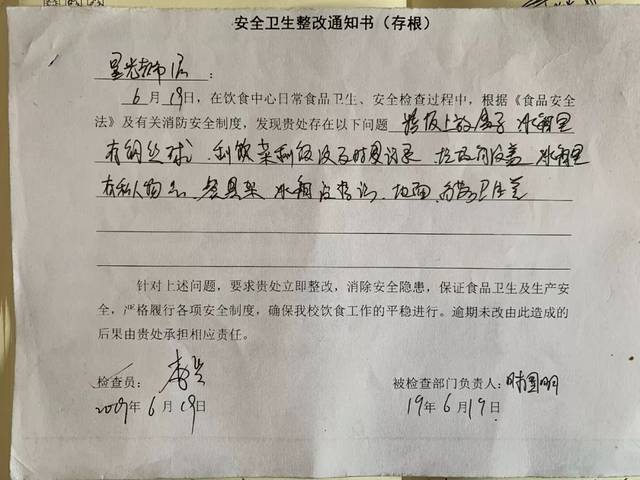 安全卫生整改通知书（存根）
星光都市店：
6月19日，在饮食中心日常食品卫生、安全检查过程中，根据《食品安全
法》及有关消防安全制度，发现贵处存在以下问题 上放盒子 冰箱里
有钢丝球、剩饭菜剩饭没及时记录、垃圾桶没盖、冰箱里
有私人物品、餐具架、冰箱、地面、卫生差
针对上述问题，要求贵处立即整改，消除安全隐患，保证食品卫生及生产安
全，严格履行各项安全制度，确保我校饮食工作的平稳进行。逾期未改由此造成的
后果由贵处承担相应责任。
检查员：
被检查部门负责人：
2019年6月19日
19年6月19日